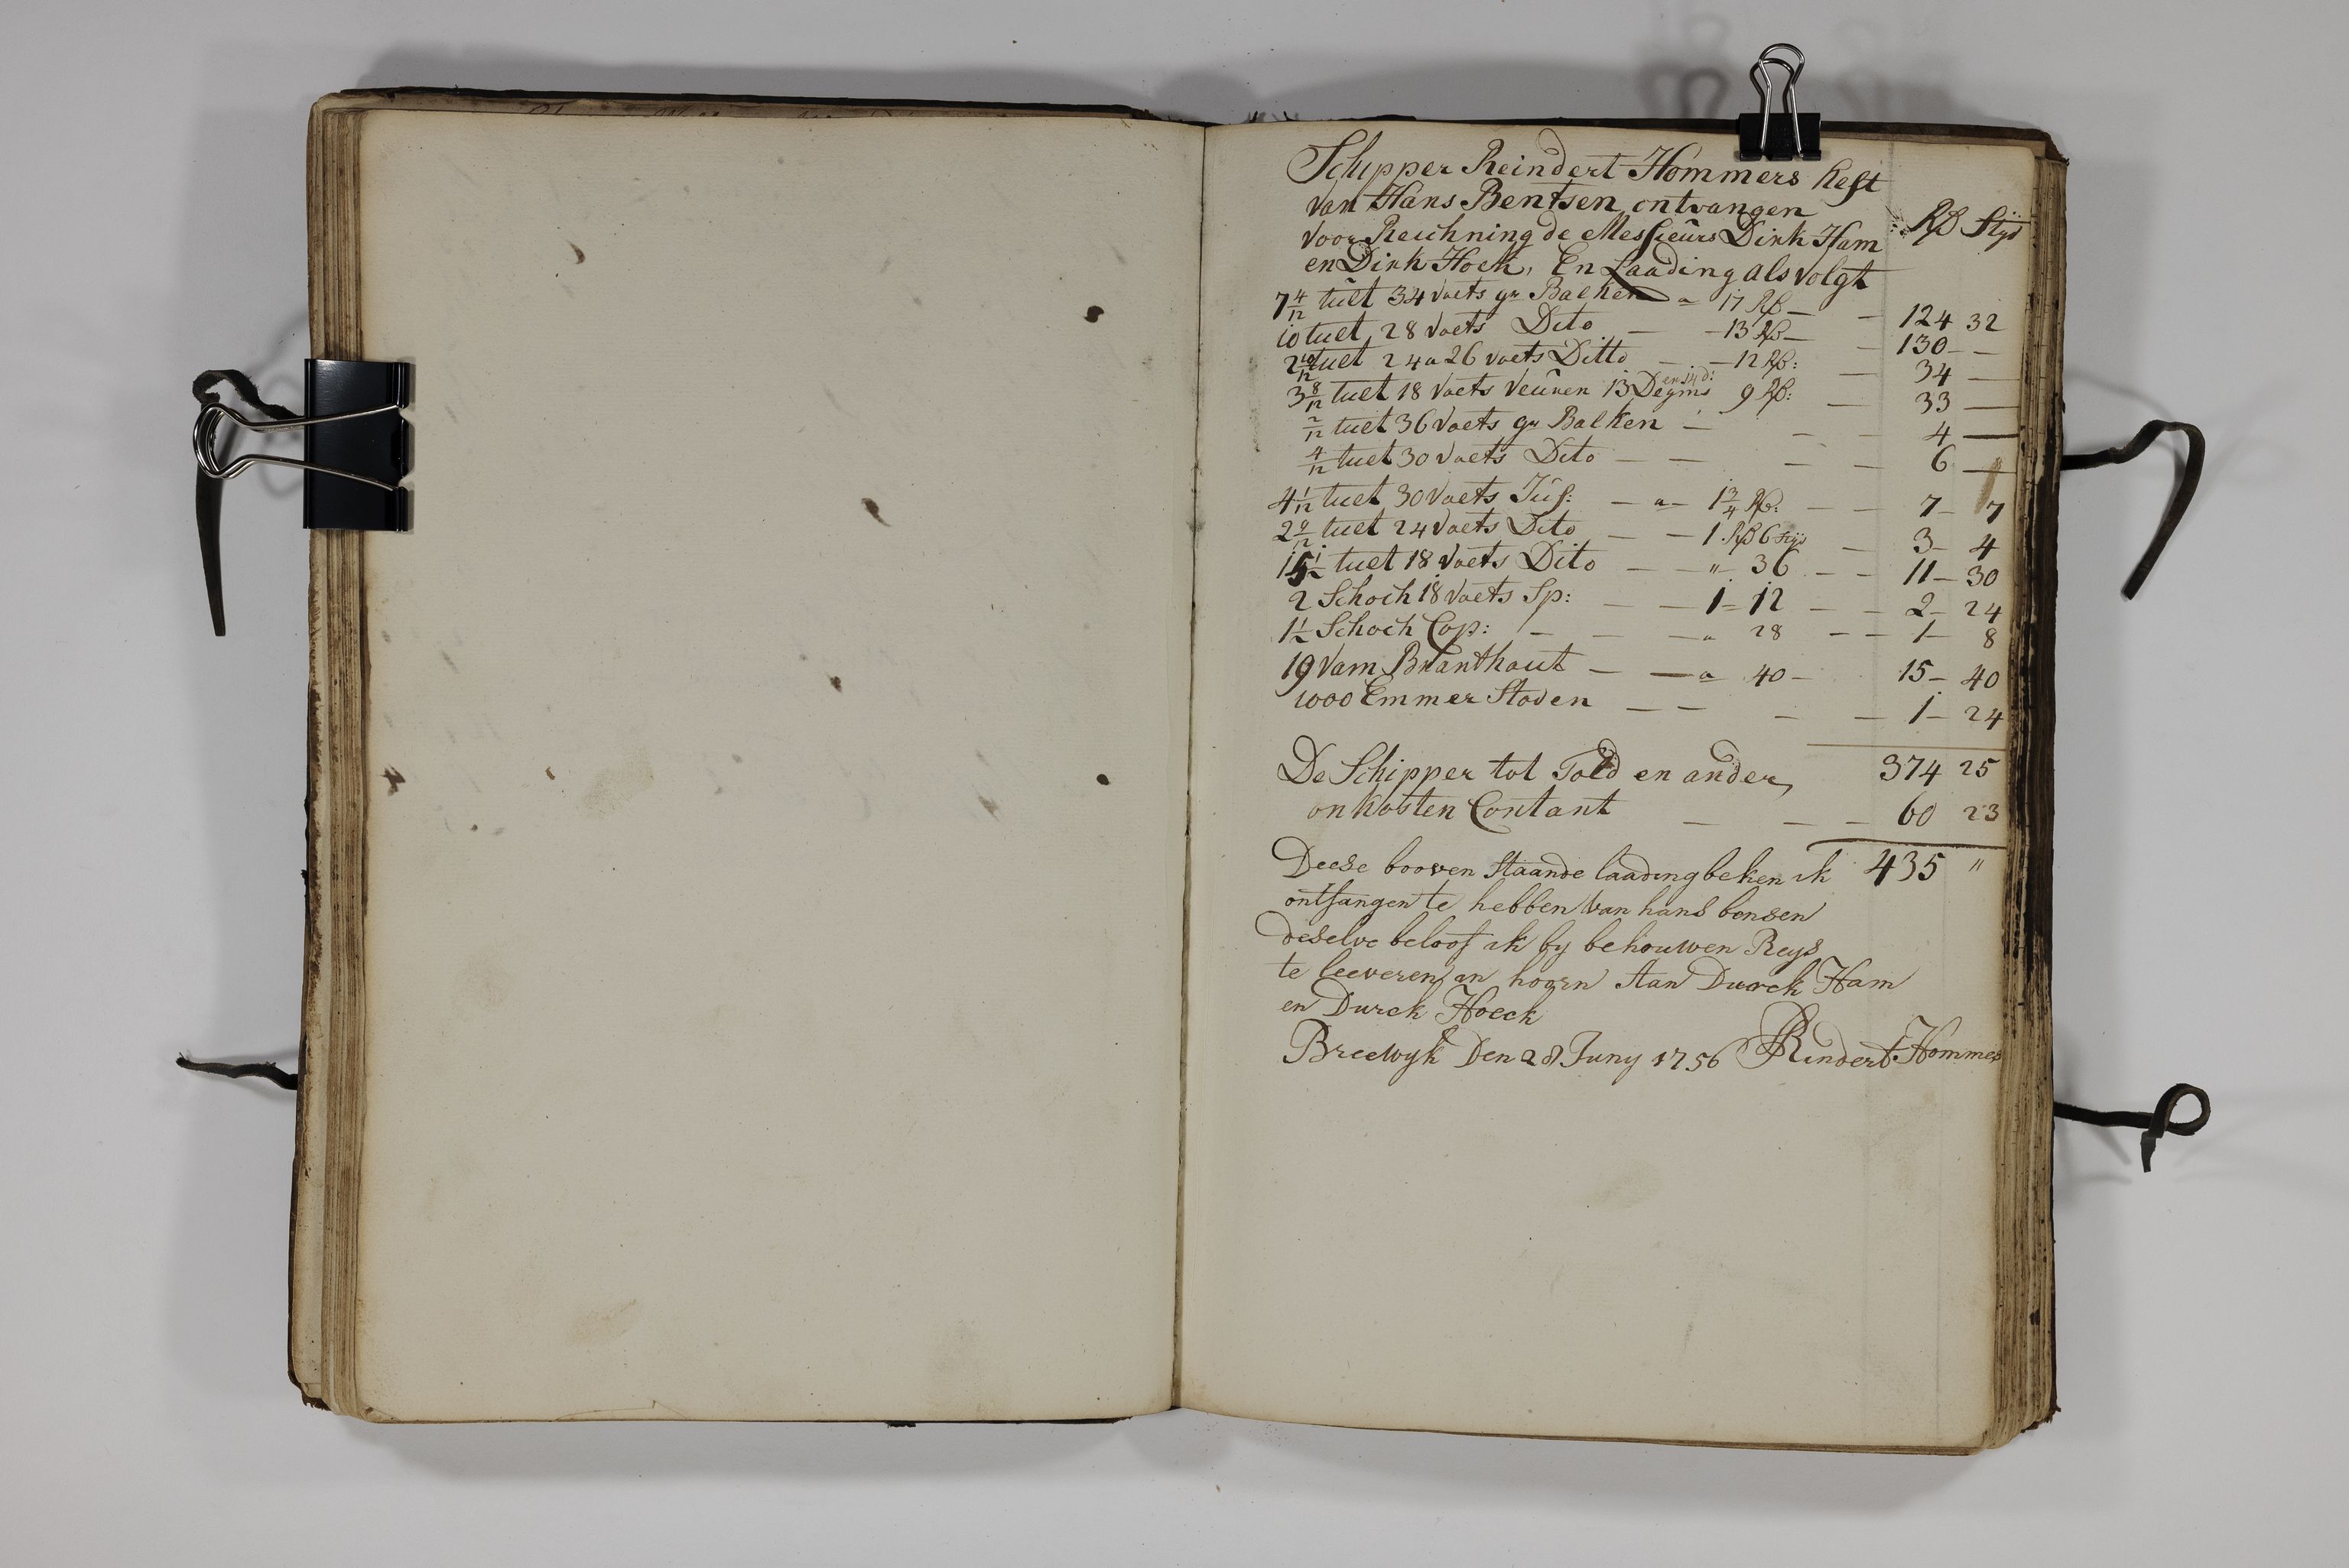 Schipper Reindert Hommers heft
van Hans Bentsen ontvangen
voor Reichning de Messieurs Dirk Ham Rß Stÿv
en Dirk Hoek, En Laading als volgt
7 4/12 tuelt 34 voets gr Balken a 17 Rß — — 124 32
10 tuelt 28 voets Dito — — 13 Rß — — 130 — —
2 10/12 tuelt 24 a 26 voets Ditto — — 12 Rß: — 34 —
3 8/12 tuelt 18 voets veuren 13 en 14 d: 9 Rß: — 33 —
2/12 tuelt 36 voets gr Balken — — — 4 —
4/12 tuelt 30 voets Dito — — — — 6 —
4 1/12 tuelt 30 voets Juf: — a — 1 3/4 Rß: — — 7 — 7
2 9/12 tuelt 24 voets Dito — — 1 Rß 6 stÿv — 3 — 4
15 1/2 tuelt 18 voets Dito — — " 36 — — 11 — 30
2 Schoch 18 voets Sp: — — 1 = 12 — — 2 — 24
1 1/2 Schoch Cop: — — — a 28 — — 1 — 8
19 Vam Branthout — — a 40 — 15 — 40
1000 Emmer Staven — — — — 1 — 24
De Schipper tot Told en ander 374 25
onkosten Contant — — — 60 23
Deese booven staande laading beken ik 435 "
ontfangen te hebben van hans bensen
deselve beloof ik by behouwen Reys
te leeveren in hoorn Aan Durck Ham
en Durck Hoeck
Breewyk Den 28 Juny 1756 Rindert Hommes